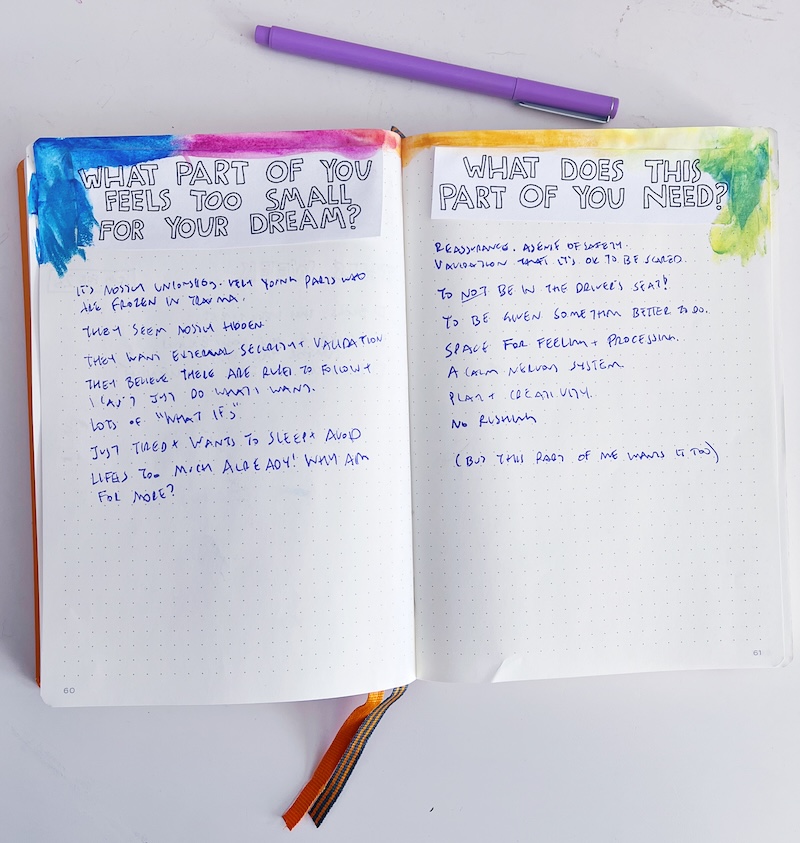 WHAT PART OF YOU
FEELS TOO SMALL
FOR YOUR DREAM?
IT'S MOSTLY UNCONSCIOUS. VERY YOUNG PARTS WHO
ARE FROZEN IN TRAUMA.
THEY SEEM MOSTLY HIDDEN.
THEY WANT EXTERNAL SECURITY + VALIDATION
THEY BELIEVE THERE ARE RULES TO FOLLOW +
I CAN'T JUST DO WHAT I WANT.
LOTS OF "WHAT IFS"
JUST TIRED + WANTS TO SLEEP + AVOID
LIFE'S TOO MUCH ALREADY! WHY AIM
FOR MORE?
60
WHAT DOES THIS
PART OF YOU NEED?
REASSURANCE. A SENSE OF SAFETY.
VALIDATION THAT IT'S OK TO BE SCARED.
TO NOT BE IN THE DRIVER'S SEAT!
TO BE GIVEN SOMETHING BETTER TO DO.
SPACE FOR FEELING + PROCESSING.
A CALM NERVOUS SYSTEM.
PLAY + CREATIVITY.
NO RUSHING
(BUT THIS PART OF ME WANTS IT TOO)
61